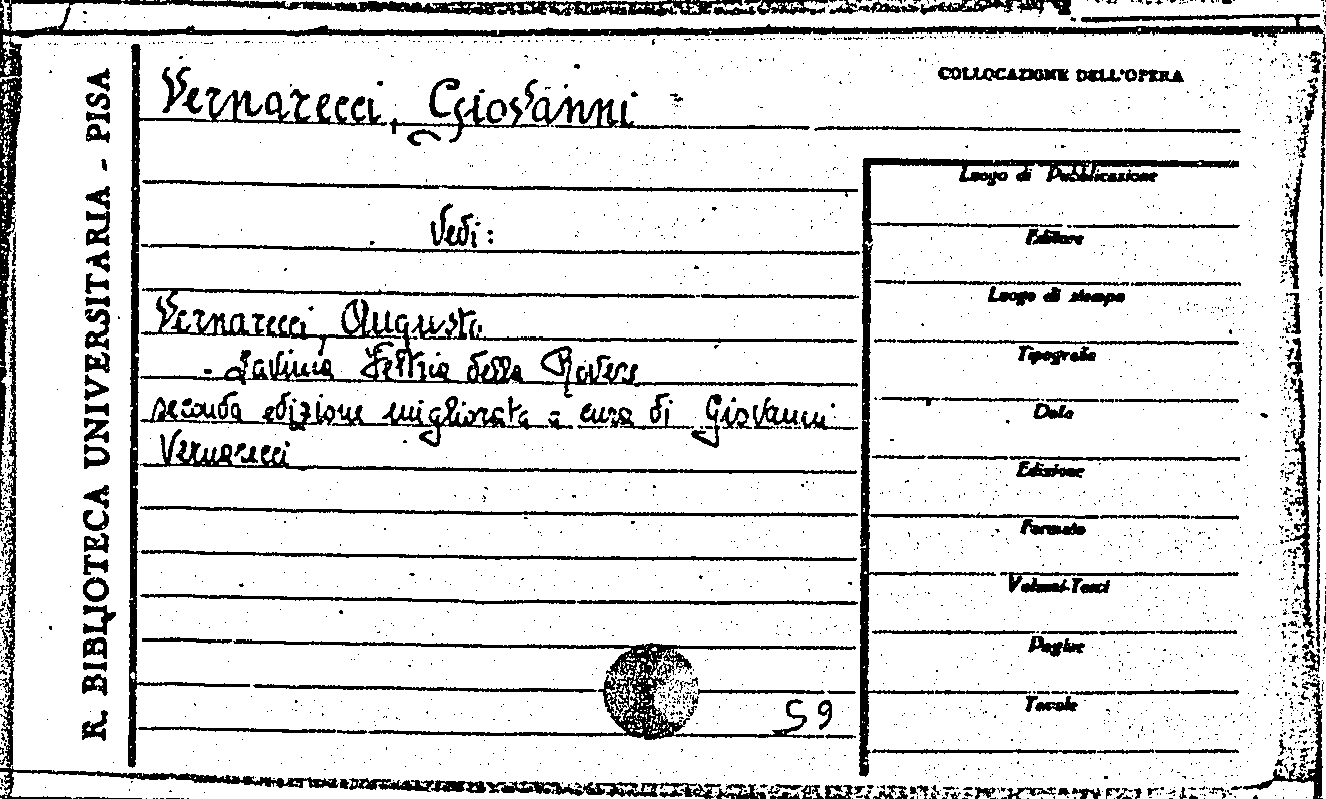 R. BIBLIOTECA UNIVERSITARIA - PISA
Vernarecci, Giovanni
Vedi:
Vernarecci, Augusto
- Lavinia Feltria della Rovere
seconda edizione migliorata a cura di Giovanni
Vernarecci
59
COLLOCAZIONE DELL'OPERA
Luogo di Pubblicazione
Editore
Luogo di stampa
Tipografia
Data
Edizione
Formato
Volumi-Tomi
Pagine
Tavole